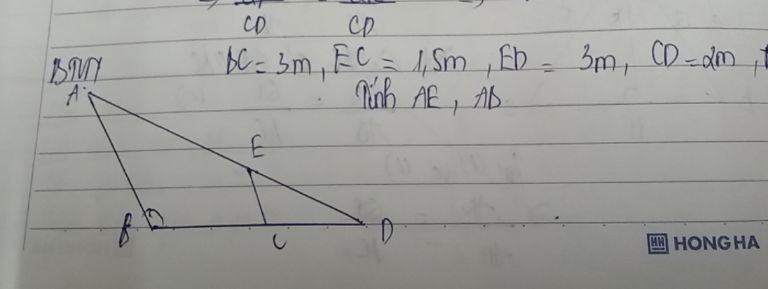 CD CD
BTVN BC = 3m, EC = 1,5m, ED = 3m, CD = 2m,
Tính AE, AB
A
E
B C D
HONG HA